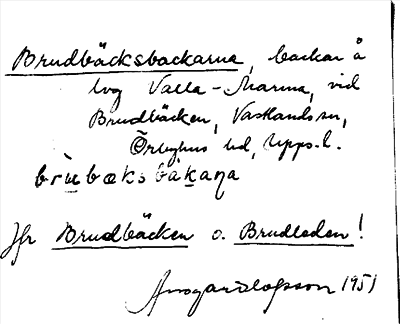 Brudbäcksbackarna, backar å
lvg Valla-Marma, vid
Brudbäcken, Vastlands sn,
Örbyhus hd, Upps. l.
brùbæksbàkaṇa
Jfr Brudbäcken o. Brudleden!
Olofsson 1951